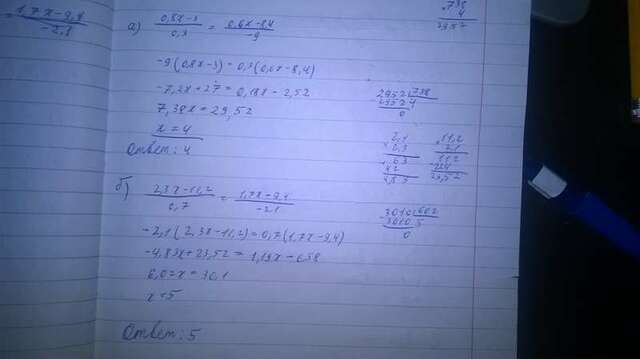 1,7x-9,4
-2,1
а) 0,8x-3 / 0,3 = 0,6x-8,4 / -9
-9(0,8x-3)=0,3(0,6x-8,4)
-7,2x+27=0,18x-2,52
7,38x=29,52
x=4
Ответ: 4
738
4
2952
2952 738
2952 4
0
2,1
2,3
63
42
4,83
11,2
2,1
112
224
23,52
б) 2,3x-11,2 / 0,7 = 1,7x-9,4 / -2,1
-2,1(2,3x-11,2)=0,7(1,7x-9,4)
-4,83x+23,52=1,19x-6,58
6,02x=30,1
x=5
3010 602
3010 5
0
Ответ: 5